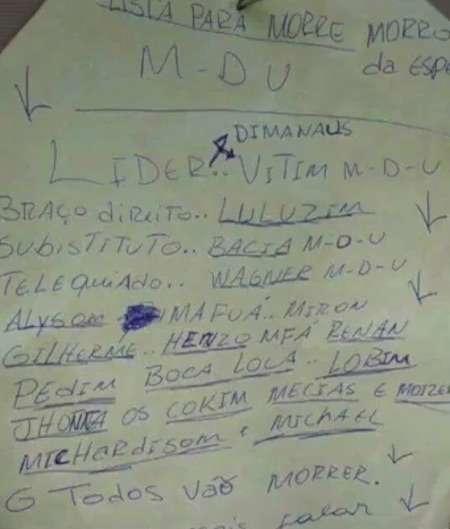 LISTA PARA MORRE MORRO
M-D U da ESPE
DIMANAUS
LIDER.. VITIM M-D-U
BRAÇO direito.. LULUZIM
SUBISTITUTO.. BACIA M-D-U
TELEGUIADO.. WAGNER M-D-U
ALYSOM MAFUÁ.. MIRON
GILHERME.. HENZO MFÁ RENAN
PEDIM BOCA LOCA.. LOBIM
JHONTA OS COKIM MECIAS E MOIZE
MICHARDISOM E MICHAEL
G TODOS VÃO MORRER.
mais falar